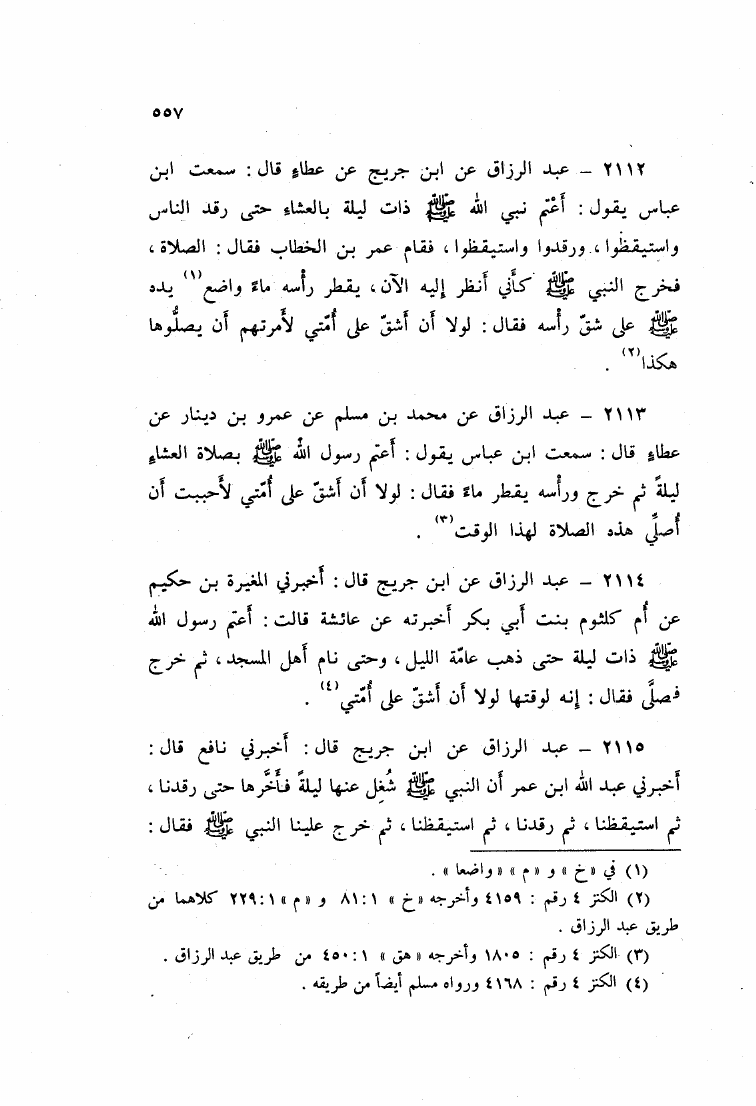 ٥٥٧
٢١١٢ – عبد الرزاق عن ابن جريج عن عطاءٍ قال : سمعت ابن
عباس يقول : أَعْتَم نبي الله ﷺ ذات ليلة بالعشاءِ حتى رقد الناس
واستيقظوا ، ورقدوا واستيقظوا ، فقام عمر بن الخطاب فقال : الصلاة ،
فخرج النبي ﷺ كأَني أنظر إليه الآن ، يقطر رأْسه ماءً واضع(١) يده
ﷺ على شقّ رأْسه فقال : لولا أن أشقّ على أُمّتي لأَمرتهم أن يصلُّوها
هكذا(٢) .
٢١١٣ – عبد الرزاق عن محمد بن مسلم عن عمرو بن دينار عن
عطاءٍ قال : سمعت ابن عباس يقول : أَعتم رسول الله ﷺ بصلاة العشاءِ
ليلةً ثم خرج ورأْسه يقطر ماءً فقال : لولا أن أشقّ على أُمّتي لأَحببت أن
أُصلِّي هذه الصلاة لهذا الوقت(٣) .
٢١١٤ – عبد الرزاق عن ابن جريج قال : أَخبرني المغيرة بن حكيم
عن أُم كلثوم بنت أَبي بكر أَخبرته عن عائشة قالت : أَعتم رسول الله
ﷺ ذات ليلة حتى ذهب عامّة الليل ، وحتى نام أهل المسجد ، ثم خرج
فصلَّى فقال : إنه لوقتها لولا أن أشقّ على أُمّتي(٤) .
٢١١٥ – عبد الرزاق عن ابن جريج قال : أَخبرني نافع قال :
أَخبرني عبد الله ابن عمر أن النبي ﷺ شُغِل عنها ليلةً فأَخَّرها حتى رقدنا ،
ثم استيقظنا ، ثم رقدنا ، ثم استيقظنا ، ثم خرج علينا النبي ﷺ فقال :
(١) في «خ» و «م» «واضعا» .
(٢) الكنز ٤ رقم : ٤١٥٩ وأخرجه «خ» ٨١:١ و «م» ٢٢٩:١ كلاهما من
طريق عبد الرزاق .
(٣) الكنز ٤ رقم : ١٨٠٥ وأخرجه «هق» ٤٥٠:١ من طريق عبد الرزاق .
(٤) الكنز ٤ رقم : ٤١٦٨ ورواه مسلم أيضاً من طريقه .